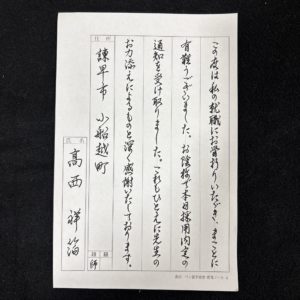 この度は私の就職にお骨折りいただき、まことに
有難うございました。お陰様で本日採用内定の
通知を受け取りました。これもひとえに先生の
お力添えによるものと深く感謝いたしております。
住所
諫早市 小船越町
氏名
高西 祥苑
師